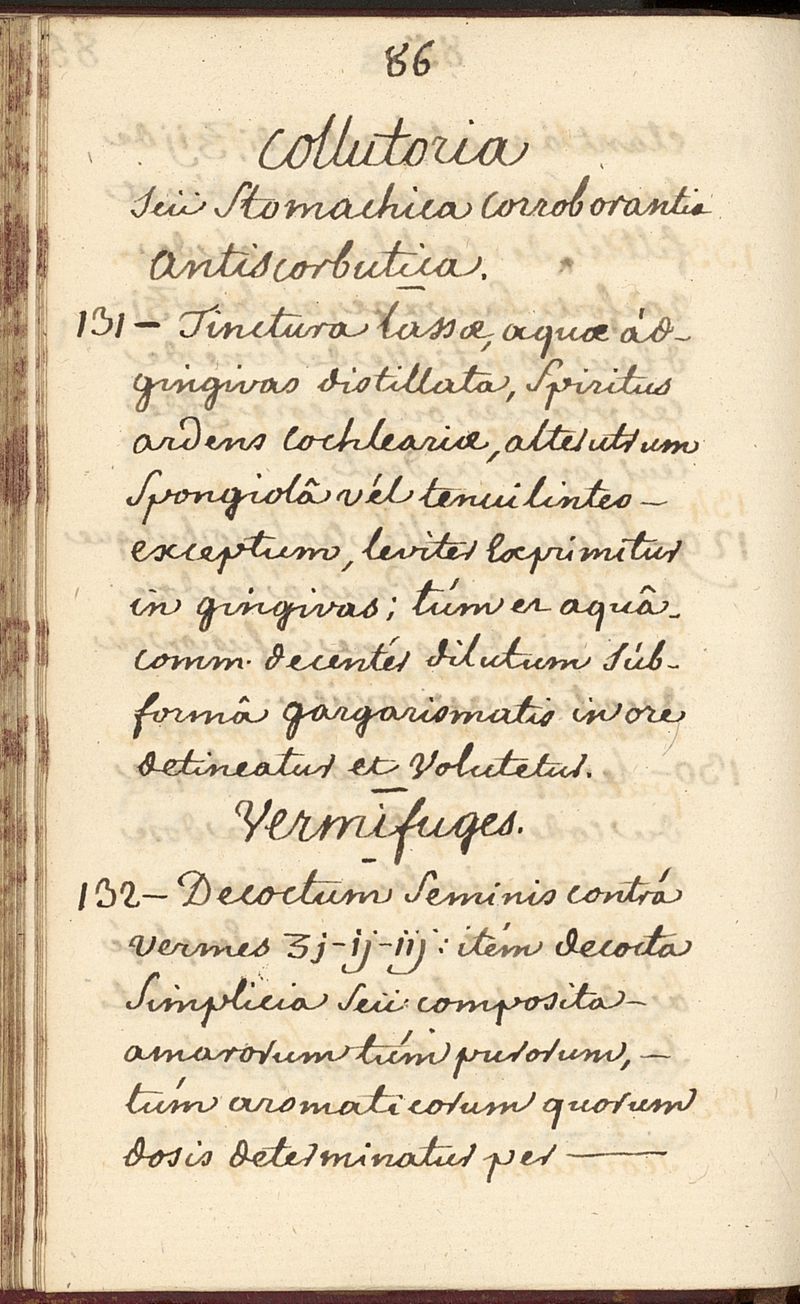 86
Collutoria
seü Stomachica Corroborantia
Antiscorbutica.
131 – Tinctura lassæ, aquæ ád-
gingivas distillata, Spiritus
ardens Cochleariæ, alterutrum
Spongiolâ vél tenui linteo –
exceptum, leviter Exprimitur
in gingivas; túm et aquâ-
comm. decentér dilutum súb-
formâ gargarismatis in ore
detineatur et Volutetur.
Vermifuges.
132 – Decoctum Seminis contrá
vermes ʒj-ij-iij: itém decocta
Simplicia Seü composita –
amarorum túm purorum, –
túm aromaticorum quorum
dosis determinatur per ——